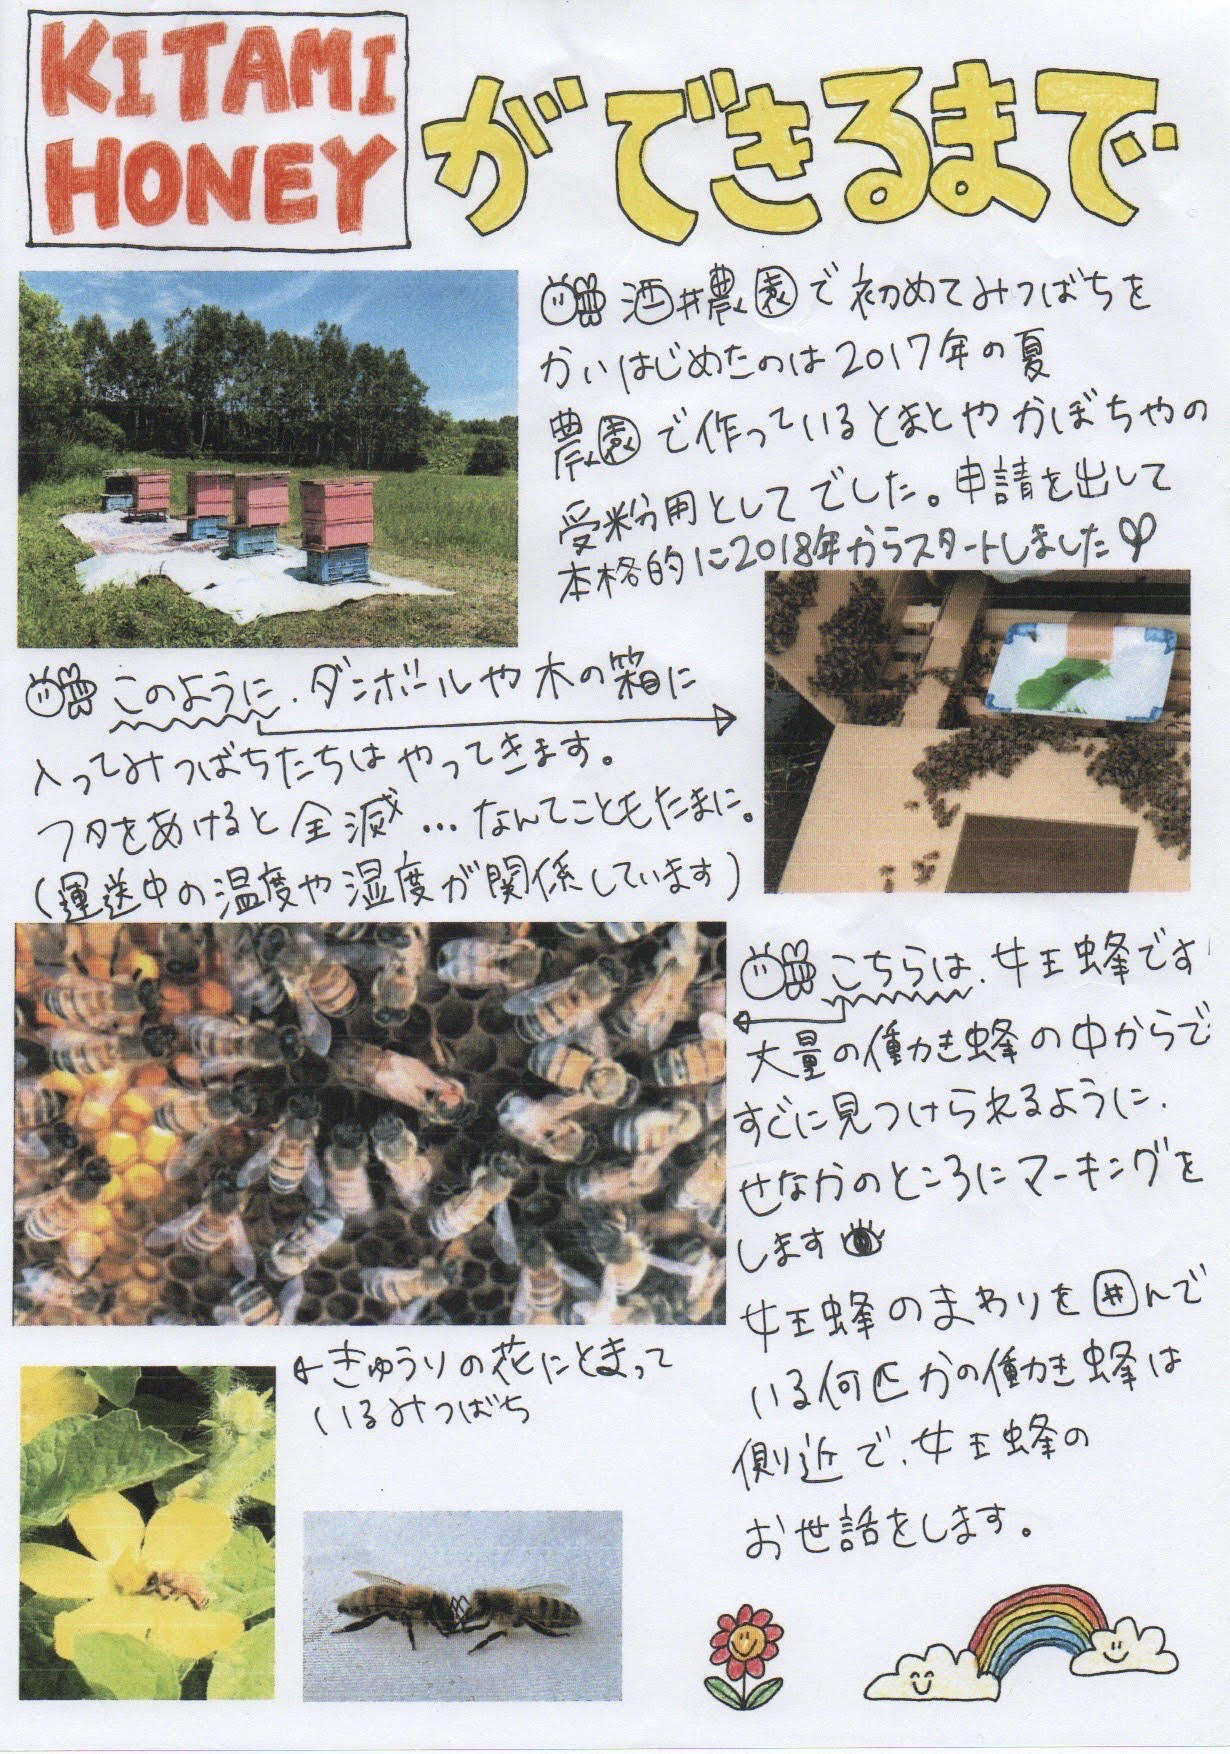 KITAMI
HONEY
ができるまで
酒井農園で初めてみつばちを
かいはじめたのは2017年の夏
農園で作っているとまとやかぼちゃの
受粉用としてでした。申請を出して
本格的に2018年からスタートしました♡
このように、ダンボールや木の箱に
入ってみつばちたちはやってきます。
フタをあけると全滅…なんてこともたまに。
(運送中の温度や湿度が関係しています)
こちらは、女王蜂です
大量の働き蜂の中からで
すぐに見つけられるように、
せなかのところにマーキングを
します
女王蜂のまわりを囲んで
いる何匹かの働き蜂は
側近で、女王蜂の
お世話をします。
←きゅうりの花にとまって
いるみつばち